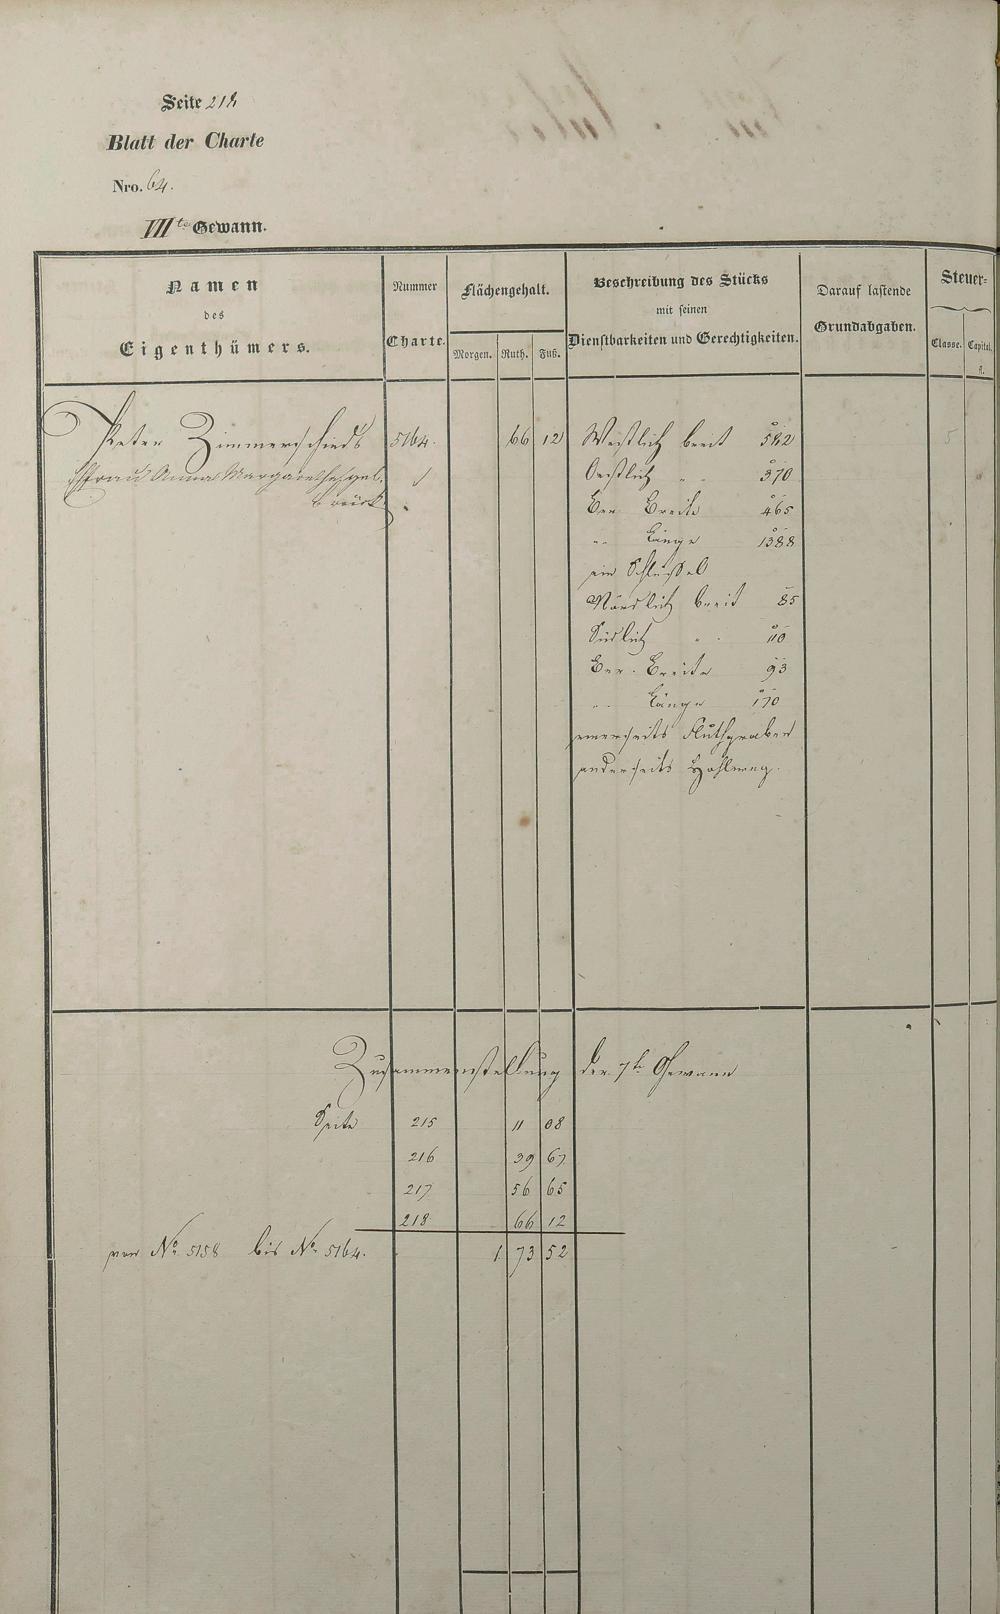 Seite 218
Blatt der Charte
Nro. 64.
VII te Gewann.
Namen
des
Eigenthümers.
Nummer
Charte.
Flächengehalt.
Morgen. Ruth. Fuß.
Beschreibung des Stücks
mit seinen
Dienstbarkeiten und Gerechtigkeiten.
Darauf lastende
Grundabgaben.
Steuer-
Classe. Capital.
fl.
Peter Zimmerschieds 5164. 66 12 Westlich breit 582
Ehfrau Anna Margaretha Oestlich „ „ 370
Ber. Breite 465
„ Länge 1388
ein Schlüssel
Nördlich breit 85
Südlich „ 110
Ber. Breite 93
„ Länge 170
einerseits Fluthgraben
anderseits Hohlweg.
5
Zusammenstellung der 7te Gewann
Seite 215 11 08
216 39 67
217 56 65
218 66 12
von No. 5158 bis No. 5164. 1 73 52